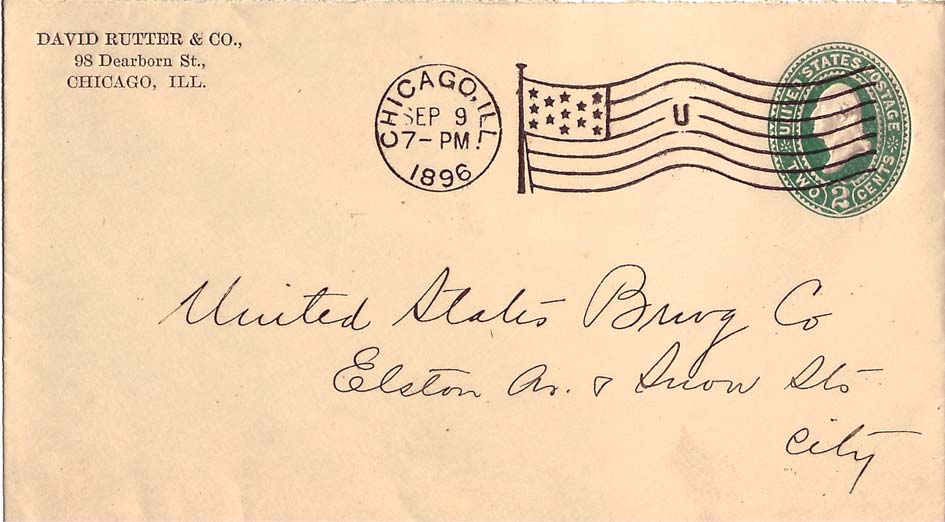 DAVID RUTTER & CO.,
98 Dearborn St.,
CHICAGO, ILL.
CHICAGO, ILL.
SEP 9
7-PM
1896
U
UNITED STATES POSTAGE
TWO 2 CENTS
United States Brwg Co
Elston Av. & Snow Sts
City